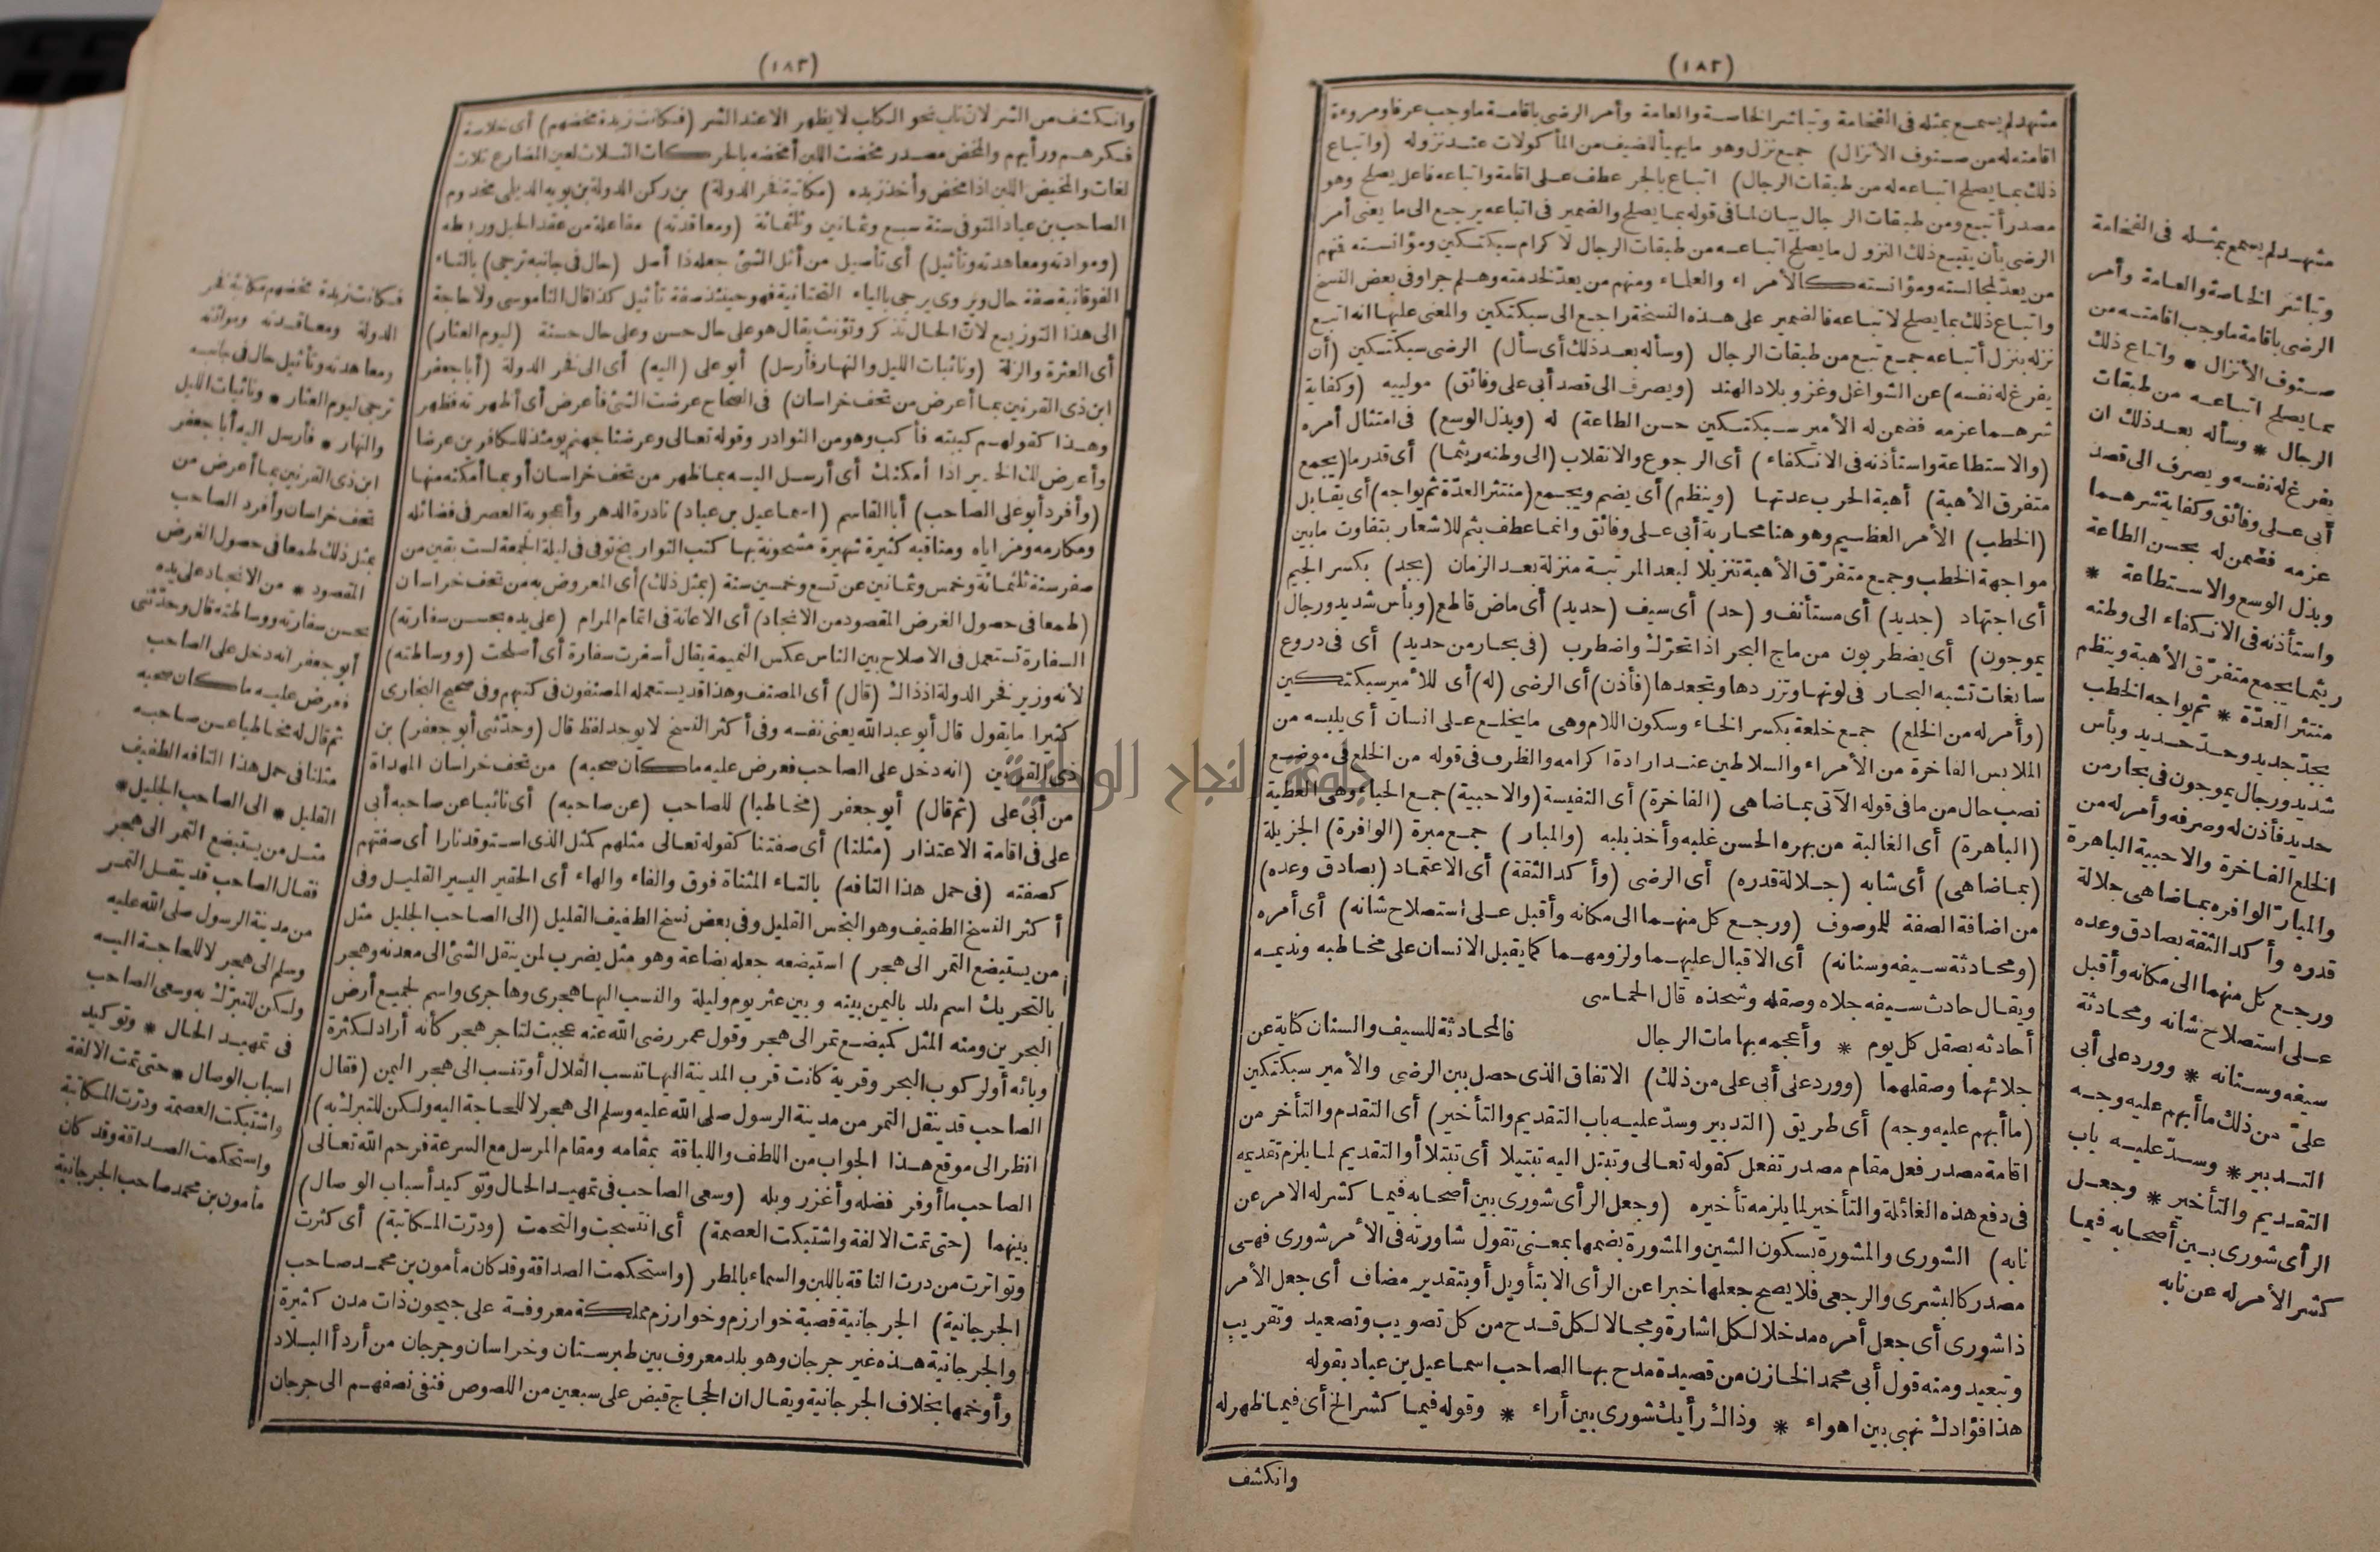 (١٨٢)
مشهد لم يسمع بمثله فى الفخامة وتباشر الخاصة والعامة وأمر الرضى باقامة ما وجب عرفا ومروءة
اقامته له من صنوف الأنزال) جمع نزل وهو ما يهيأ للضيف من المأكولات عند نزوله (واتباع
ذلك بما يصلح اتباعه له من طبقات الرجال) اتباع بالجر عطف على اقامة واتباعه فاعل يصلح وهو
مصدر أتبع ومن طبقات الرجال بيان لما فى قوله بما يصلح والضمير فى اتباعه يرجع الى ما يعنى أمر
الرضى بأن يتبع ذلك النزول ما يصلح اتباعه من طبقات الرجال لاكرام سبكتكين ومؤانسته فمنهم
من يعد لمجالسته ومؤانسته كالأمراء والعلماء ومنهم من يعد لخدمته وهلم جرا وفى بعض النسخ
واتباع ذلك بما يصلح لاتباعه فالضمير على هذه النسخة راجع الى سبكتكين والمعنى عليها انه اتبع
نزله بنزل أتباعه جمع تبع من طبقات الرجال (وسأله بعد ذلك أى سأل) الرضى سبكتكين (أن
يفرغ له نفسه) عن الشواغل وغزو بلاد الهند (ويصرف الى قصد أبى على وفائق) مولييه (وكفاية
شرهما عزمه فضمن له الأمير سبكتكين حسن الطاعة) له (وبذل الوسع) فى امتثال أمره
(والاستطاعة واستأذنه فى الانكفاء) أى الرجوع والانقلاب (الى وطنه ريثما) أى قدر ما (يجمع
متفرق الأهبة) أهبة الحرب عدتها (وينظم) أى يضم ويجمع (منتثر العدّة ثم يواجه) أى يقابل
(الخطب) الأمر العظيم وهو هنا محاربة أبى على وفائق وانما عطف بثم للاشعار بتفاوت ما بين
مواجهة الخطب وجمع متفرّق الأهبة تنزيلا لبعد المرتبة منزلة بعد الزمان (بجد) بكسر الجيم
أى اجتهاد (جديد) أى مستأنف و (حد) أى سيف (حديد) أى ماض قاطع (وبأس شديد ورجال
يموجون) أى يضطربون من ماج البحر اذا تحرّك واضطرب (فى بحار من حديد) أى فى دروع
سابغات تشبه البحار فى لونها وتزردها وتجعدها (فأذن) أى الرضى (له) أى للأمير سبكتكين
(وأمر له من الخلع) جمع خلعة بكسر الخاء وسكون اللام وهى ما يخلع على انسان أى يلبسه من
الملابس الفاخرة من الأمراء والسلاطين عند ارادة اكرامه والظرف فى قوله من الخلع فى موضع
نصب حال من ما فى قوله الآتى بما ضاهى (الفاخرة) أى النفيسة (والاحبية) جمع الحباء وهى العطية
(الباهرة) أى الغالبة من بهره الحسن غلبه وأخذ بلبه (والمبار) جمع مبرة (الوافرة) الجزيلة
(بما ضاهى) أى شابه (جلالة قدره) أى الرضى (وأكد الثقة) أى الاعتماد (بصادق وعده)
من اضافة الصفة للموصوف (ورجع كل منهما الى مكانه وأقبل على استصلاح شانه) أى أمره
(ومحادثة سيفه وسنانه) أى الاقبال عليهما ولزومهما كما يقبل الانسان على مخاطبه ونديمه
ويقال حادث سيفه جلاه وصقله وشحذه قال الحماسى
أحادثه بصقل كل يوم * وأعجمه بهامات الرجال فالمحادثة للسيف والسنان كناية عن
جلائهما وصقلهما (وورد على أبى على من ذلك) الاتفاق الذى حصل بين الرضى والأمير سبكتكين
(ما أبهم عليه وجه) أى طريق (التدبير وسدّ عليه باب التقديم والتأخير) أى التقدم والتأخر من
اقامة مصدر فعل مقام مصدر تفعل كقوله تعالى وتبتل اليه تبتيلا أى تبتلا أو التقديم لما يلزم تقديمه
فى دفع هذه الغائلة والتأخير لما يلزمه تأخيره (وجعل الرأى شورى بين أصحابه فيما كشر له الامر عن
نابه) الشورى والمشورة بسكون الشين والمشورة بضمها بمعنى تقول شاورته فى الأمر شورى فهى
مصدر كالبشرى والرجعى فلا يصح جعلها خبرا عن الرأى الا بتأويل أو بتقدير مضاف أى جعل الأمر
ذا شورى أى جعل أمره مدخلا لكل اشارة ومجالا لكل قدح من كل تصويب وتصعيد وتقريب
وتبعيد ومنه قول أبى محمد الخازن من قصيدة مدح بها الصاحب اسماعيل بن عباد بقوله
هذا فؤادك نهبى بين اهواء * وذاك رأيك شورى بين أراء * وقوله فيما كشر الخ أى فيما ظهر له
وانكشف
مشهد لم يسمع بمثله فى الفخامة
وتباشر الخاصة والعامة وأمر
الرضى باقامة ما وجب اقامته من
صنوف الأنزال * واتباع ذلك
بما يصلح اتباعه من طبقات
الرجال * وسأله بعد ذلك ان
يفرغ له نفسه ويصرف الى قصد
أبى على وفائق وكفاية شرهما
عزمه فضمن له بحسن الطاعة
وبذل الوسع والاستطاعة *
واستأذنه فى الانكفاء الى وطنه
ريثما يجمع متفرّق الأهبة وينظم
منتثر العدّة * ثم يواجه الخطب
بجدّ جديد وحدّ حديد وبأس
شديد ورجال يموجون فى بحار من
حديد فأذن له وصرفه وأمر له من
الخلع الفاخرة والاحبية الباهرة
والمبارّ الوافره بما ضاهى جلالة
قدره وأكد الثقة بصادق وعده
ورجع كل منهما الى مكانه وأقبل
على استصلاح شانه ومحادثة
سيفه وسنانه * وورد على أبى
علىّ من ذلك ما أبهم عليه وجه
التدبير * وسدّ عليه باب
التقديم والتأخير * وجعل
الرأى شورى بين أصحابه فيما
كشر الأمر له عن نابه
(١٨٣)
وانكشف من الشر لان ناب نحو الكلب لا يظهر الا عند الشر (فكانت زبدة مخضهم) أى خلاصة
فكرهم ورأيهم والمخض مصدر مخضت اللبن أمخضه بالحركات الثلاث لعين المضارع ثلاث
لغات والمخيض اللبن اذا مخض وأخذ زبده (مكاتبة فخر الدولة) بن ركن الدولة بن بويه الديلمى مخدوم
الصاحب بن عباد المتوفى سنة سبع وثمانين وثلثمائة (ومعاقدته) مفاعلة من عقد الحبل وربطه
(وموادته ومعاهدته وتأثيل) أى تأصيل من أثل الشئ جعله ذا أصل (حال فى جانبه ترجى) بالتاء
الفوقانية صفة حال ويروى يرجى بالياء التحتانية فهو حينئذ صفة تأثيل كذا قال الناموسى ولا حاجة
الى هذا التوزيع لان الحال تذكر وتؤنث يقال هو على حال حسن وعلى حال حسنة (ليوم العثار)
أى العثرة والزلة (ونائبات الليل والنهار فأرسل) أبو على (اليه) أى الى فخر الدولة (أبا جعفر
ابن ذى القرنين بما أعرض من تحف خراسان) فى الصحاح عرضت الشئ فأعرض أى أظهرته فظهر
وهذا كقولهم كببته فأكب وهو من النوادر وقوله تعالى وعرضنا جهنم يومئذ للكافرين عرضا
وأعرض لك الخير اذا أمكنك أى أرسل اليه بما ظهر من تحف خراسان أو بما أمكنه منها
(وأفرد أبو على الصاحب) أبا القاسم (اسماعيل بن عباد) نادرة الدهر وأعجوبة العصر فى فضائله
ومكارمه ومزاياه ومناقبه كثيرة شهيرة مشحونة بها كتب التواريخ توفى فى ليلة الجمعة لست بقين من
صفر سنة ثلثمائة وخمس وثمانين عن تسع وخمسين سنة (بمثل ذلك) أى المعروض به من تحف خراسان
(طمعا فى حصول الغرض المقصود من الانجاد) أى الاعانة فى اتمام المرام (على يده بحسن سفارته)
السفارة تستعمل فى الاصلاح بين الناس عكس النميمة يقال أسفرت سفارة أى أصلحت (ووساطته)
لأنه وزير فخر الدولة اذ ذاك (قال) أى المصنف وهذا قد يستعمله المصنفون فى كتبهم وفى صحيح البخارى
كثيرا ما يقول قال أبو عبد الله يعنى نفسه وفى أكثر النسخ لا يوجد لفظ قال (وحدّثنى أبو جعفر) بن
ذى القرنين (انه دخل على الصاحب فعرض عليه ما كان صحبه) من تحف خراسان المهداة
من أبى على (ثم قال) أبو جعفر (مخاطبا) للصاحب (عن صاحبه) أى نائبا عن صاحبه أبى
على فى اقامة الاعتذار (مثلنا) أى صفتنا كقوله تعالى مثلهم كمثل الذى استوقد نارا أى صفتهم
كصفته (فى حمل هذا التافه) بالتاء المثناة فوق والفاء والهاء أى الحقير اليسير القليل وفى
أكثر النسخ الطفيف وهو البخس القليل وفى بعض نسخ الطفيف القليل (الى الصاحب الجليل مثل
من يستبضع التمر الى هجر) استبضعه جعله بضاعة وهو مثل يضرب لمن ينقل الشئ الى معدنه وهجر
بالتحريك اسم بلد باليمن بينه وبين عثر يوم وليلة والنسب اليها هجرى وهاجرى واسم لجميع أرض
البحرين ومنه المثل كمبضع تمر الى هجر وقول عمر رضى الله عنه عجبت لتاجر هجر كأنه أراد لكثرة
وبائه أو لركوب البحر وقرية كانت قرب المدينة اليها تنسب القلال أو تنسب الى هجر اليمن (فقال
الصاحب قد ينقل التمر من مدينة الرسول صلى الله عليه وسلم الى هجر لا للحاجة اليه ولكن للتبرك به)
انظر الى موقع هذا الجواب من اللطف واللباقة بمقامه ومقام المرسل مع السرعة فرحم الله تعالى
الصاحب ما أوفر فضله وأغزر وبله (وسعى الصاحب فى تمهيد الحال وتوكيد أسباب الوصال)
بينهما (حتى تمت الالفة واشتبكت العصمة) أى انتسجت والتحمت (ودرّت المكاتبة) أى كثرت
وتواترت من درت الناقة باللبن والسماء بالمطر (واستحكمت الصداقة وقد كان مأمون بن محمد صاحب
الجرجانية) الجرجانية قصبة خوارزم وخوارزم مملكة معروفة على جيحون ذات مدن كثيرة
والجرجانية هذه غير جرجان وهو بلد معروف بين طبرستان وخراسان وجرجان من أردأ البلاد
وأوخمها بخلاف الجرجانية ويقال ان الحجاج قبض على سبعين من اللصوص فنفى نصفهم الى جرجان
فكانت زبدة مخضهم مكاتبة فخر
الدولة ومعاقدته وموادّته
ومعاهدته وتأثيل حال فى جانبه
ترجى ليوم العثار * ونائبات الليل
والنهار * فأرسل اليه أبا جعفر
ابن ذى القرنين بما أعرض من
تحف خراسان وأفرد الصاحب
بمثل ذلك طمعا فى حصول الغرض
المقصود * من الانجاد على يده
بحسن سفارته ووساطته قال وحدّثنى
أبو جعفر انه دخل على الصاحب
فعرض عليه ما كان صحبه
ثم قال له مخاطبا عن صاحبه
مثلنا فى حمل هذا التافه الطفيف
القليل * الى الصاحب الجليل *
مثل من يستبضع التمر الى هجر
فقال الصاحب قد ينقل التمر
من مدينة الرسول صلى الله عليه
وسلم الى هجر لا للحاجة اليه
ولكن للتبرّك به وسعى الصاحب
فى تمهيد الحال * وتوكيد
اسباب الوصال * حتى تمت الالفة
واشتبكت العصمة ودرّت المكاتبة
واستحكمت الصداقة وقد كان
مأمون بن محمد صاحب الجرجانية
جامعة النجاح الوطنية